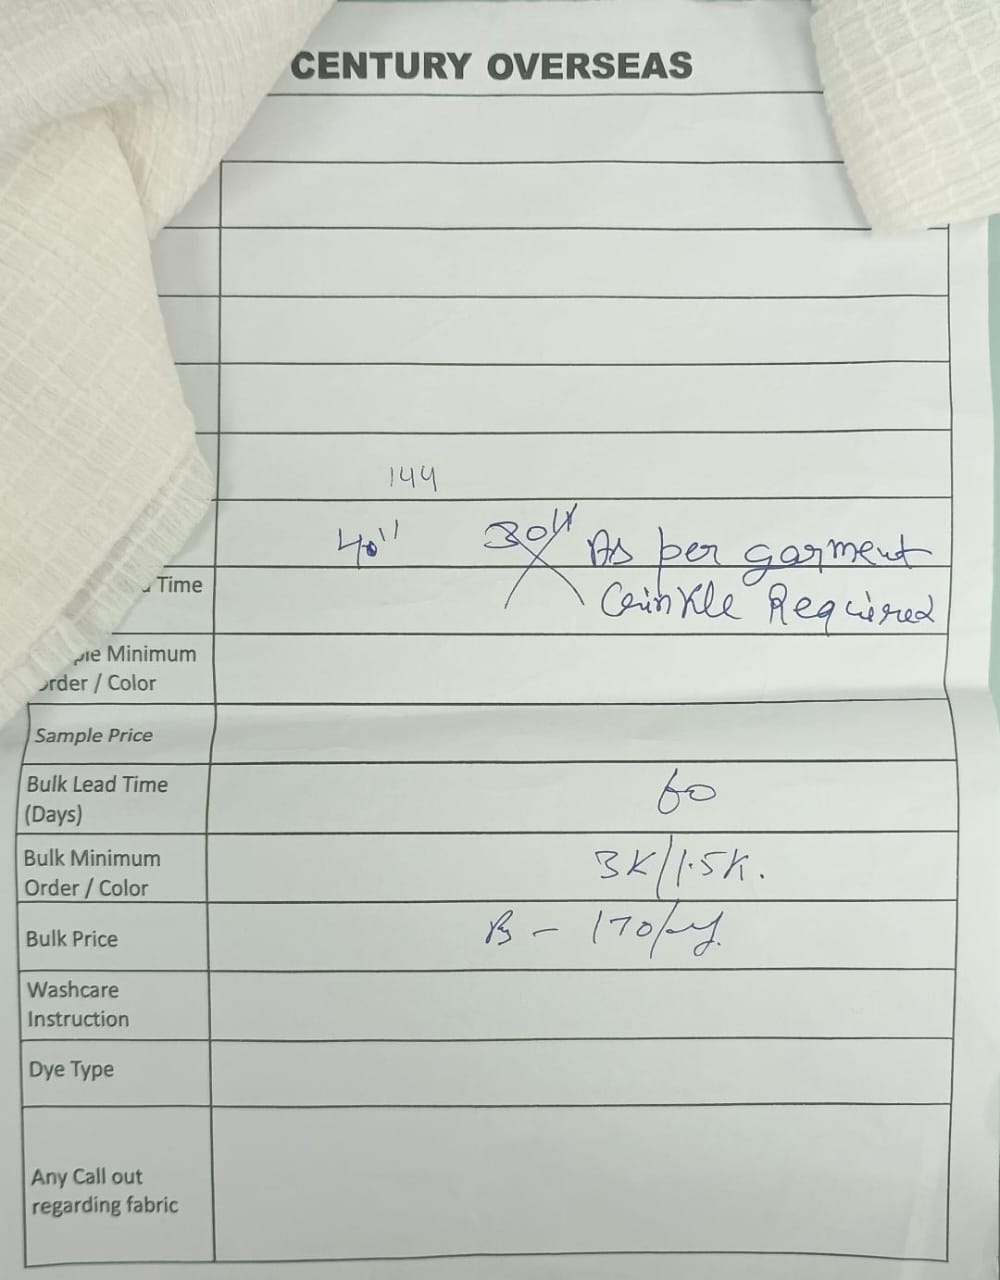 CENTURY OVERSEAS
144
40" 30" As per garment
Time
Crinkle Required
Minimum
Order / Color
Sample Price
Bulk Lead Time
(Days)
60
Bulk Minimum
Order / Color
3K/1.5K.
Bulk Price
170/
Washcare
Instruction
Dye Type
Any Call out
regarding fabric